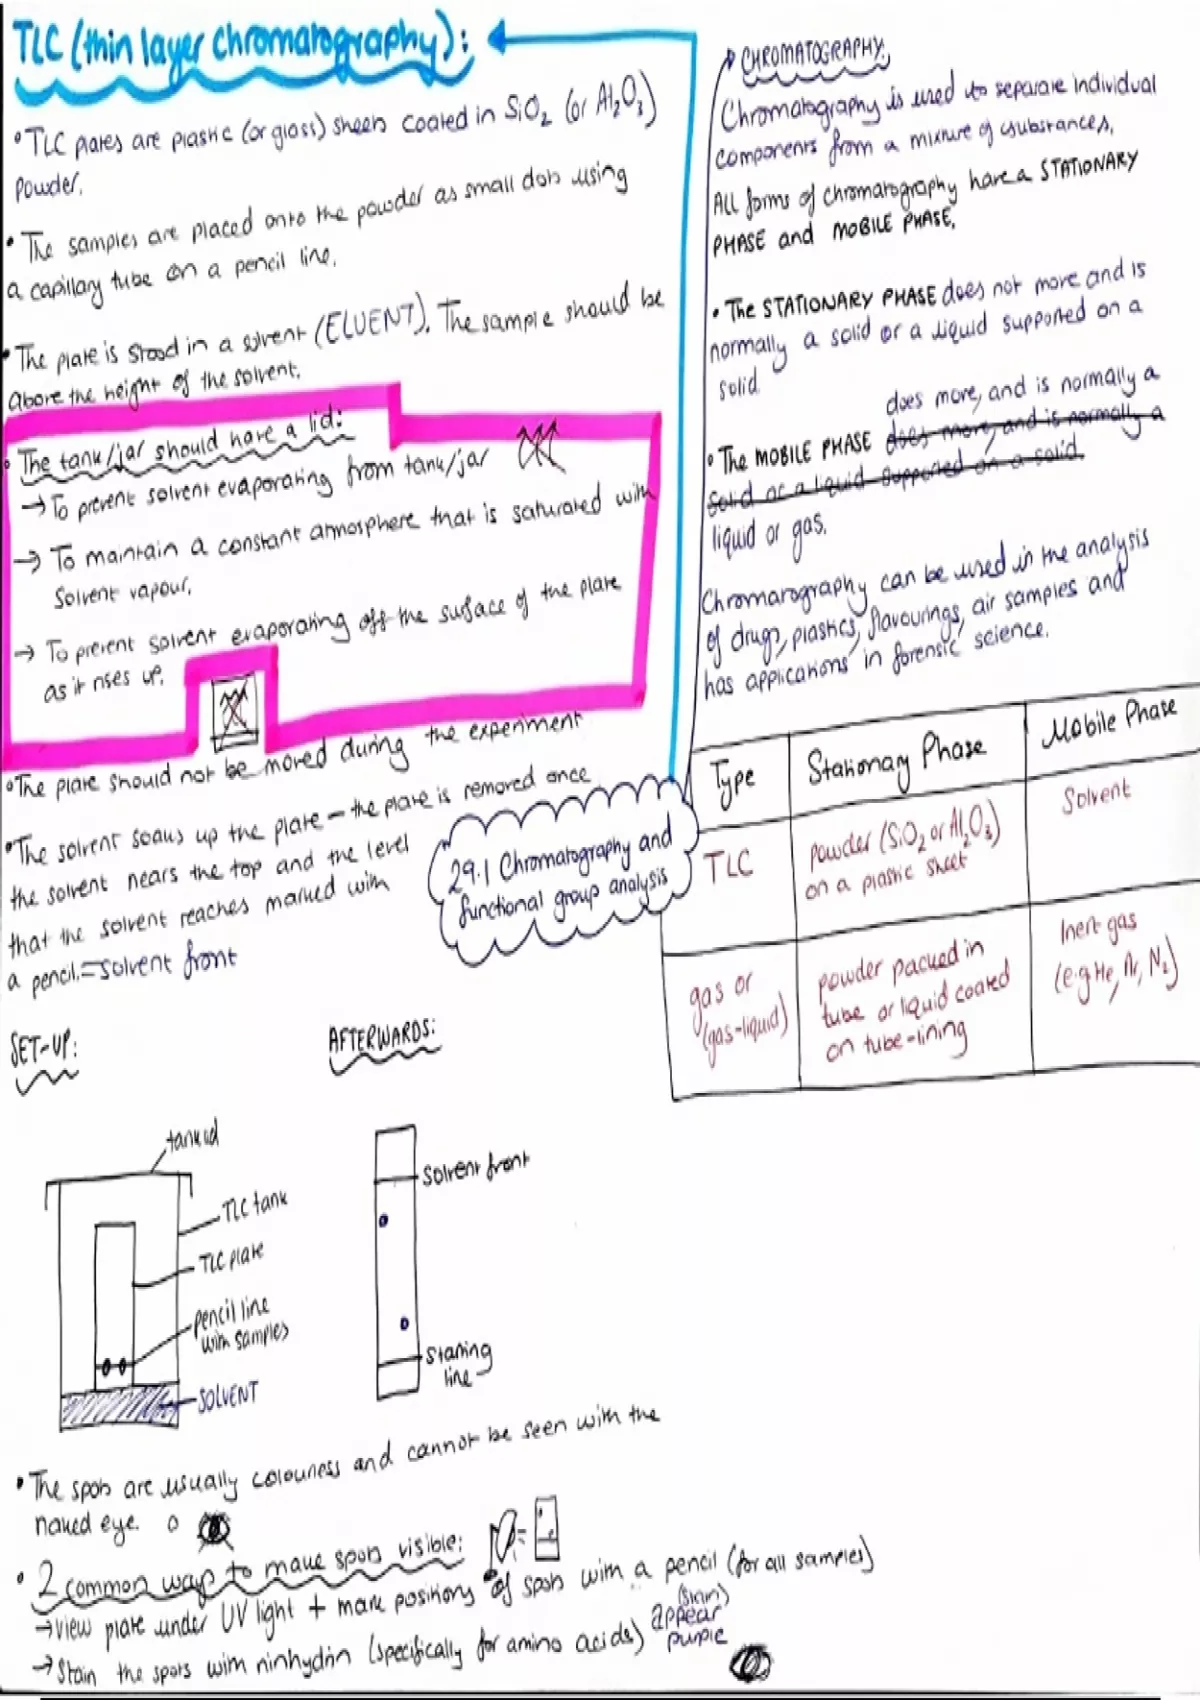 TLC (thin layer chromatography):
• TLC plates are plastic (or glass) sheets coated in SiO₂ (or Al₂O₃)
powder.
• The samples are placed onto the powder as small dots using
a capillary tube on a pencil line.
• The plate is stood in a solvent (ELUENT). The sample should be
above the height of the solvent.
• The tank/jar should have a lid:
→ To prevent solvent evaporating from tank/jar
→ To maintain a constant atmosphere that is saturated with
solvent vapour.
→ To prevent solvent evaporating off the surface of the plate
as it rises up.
• The plate should not be moved during the experiment
• The solvent soaks up the plate – the plate is removed once
the solvent nears the top and the level
that the solvent reaches marked with
a pencil. = solvent front
SET-UP:
tank lid
TLC tank
TLC plate
pencil line
with samples
SOLVENT
AFTERWARDS:
Solvent front
Starting
line
• The spots are usually colourless and cannot be seen with the
naked eye.
• 2 common ways to make spots visible:
→ View plate under UV light + mark positions of spots with a pencil (for all samples)
→ Stain the spots with ninhydrin (specifically for amino acids) appear
purple
29.1 Chromatography and
functional group analysis
CHROMATOGRAPHY:
Chromatography is used to separate individual
components from a mixture of substances.
All forms of chromatography have a STATIONARY
PHASE and MOBILE PHASE.
• The STATIONARY PHASE does not move and is
normally a solid or a liquid supported on a
solid.
does move, and is normally a
• The MOBILE PHASE does move, and is normally a
solid or a liquid supported on a solid.
liquid or gas.
Chromatography can be used in the analysis
of drugs, plastics, flavourings, air samples and
has applications in forensic science.
Type Stationary Phase Mobile Phase
TLC powder (SiO₂ or Al₂O₃)
on a plastic sheet Solvent
gas or
(gas-liquid) powder packed in
tube or liquid coated
on tube-lining Inert gas
(e.g He, Ar, N₂)